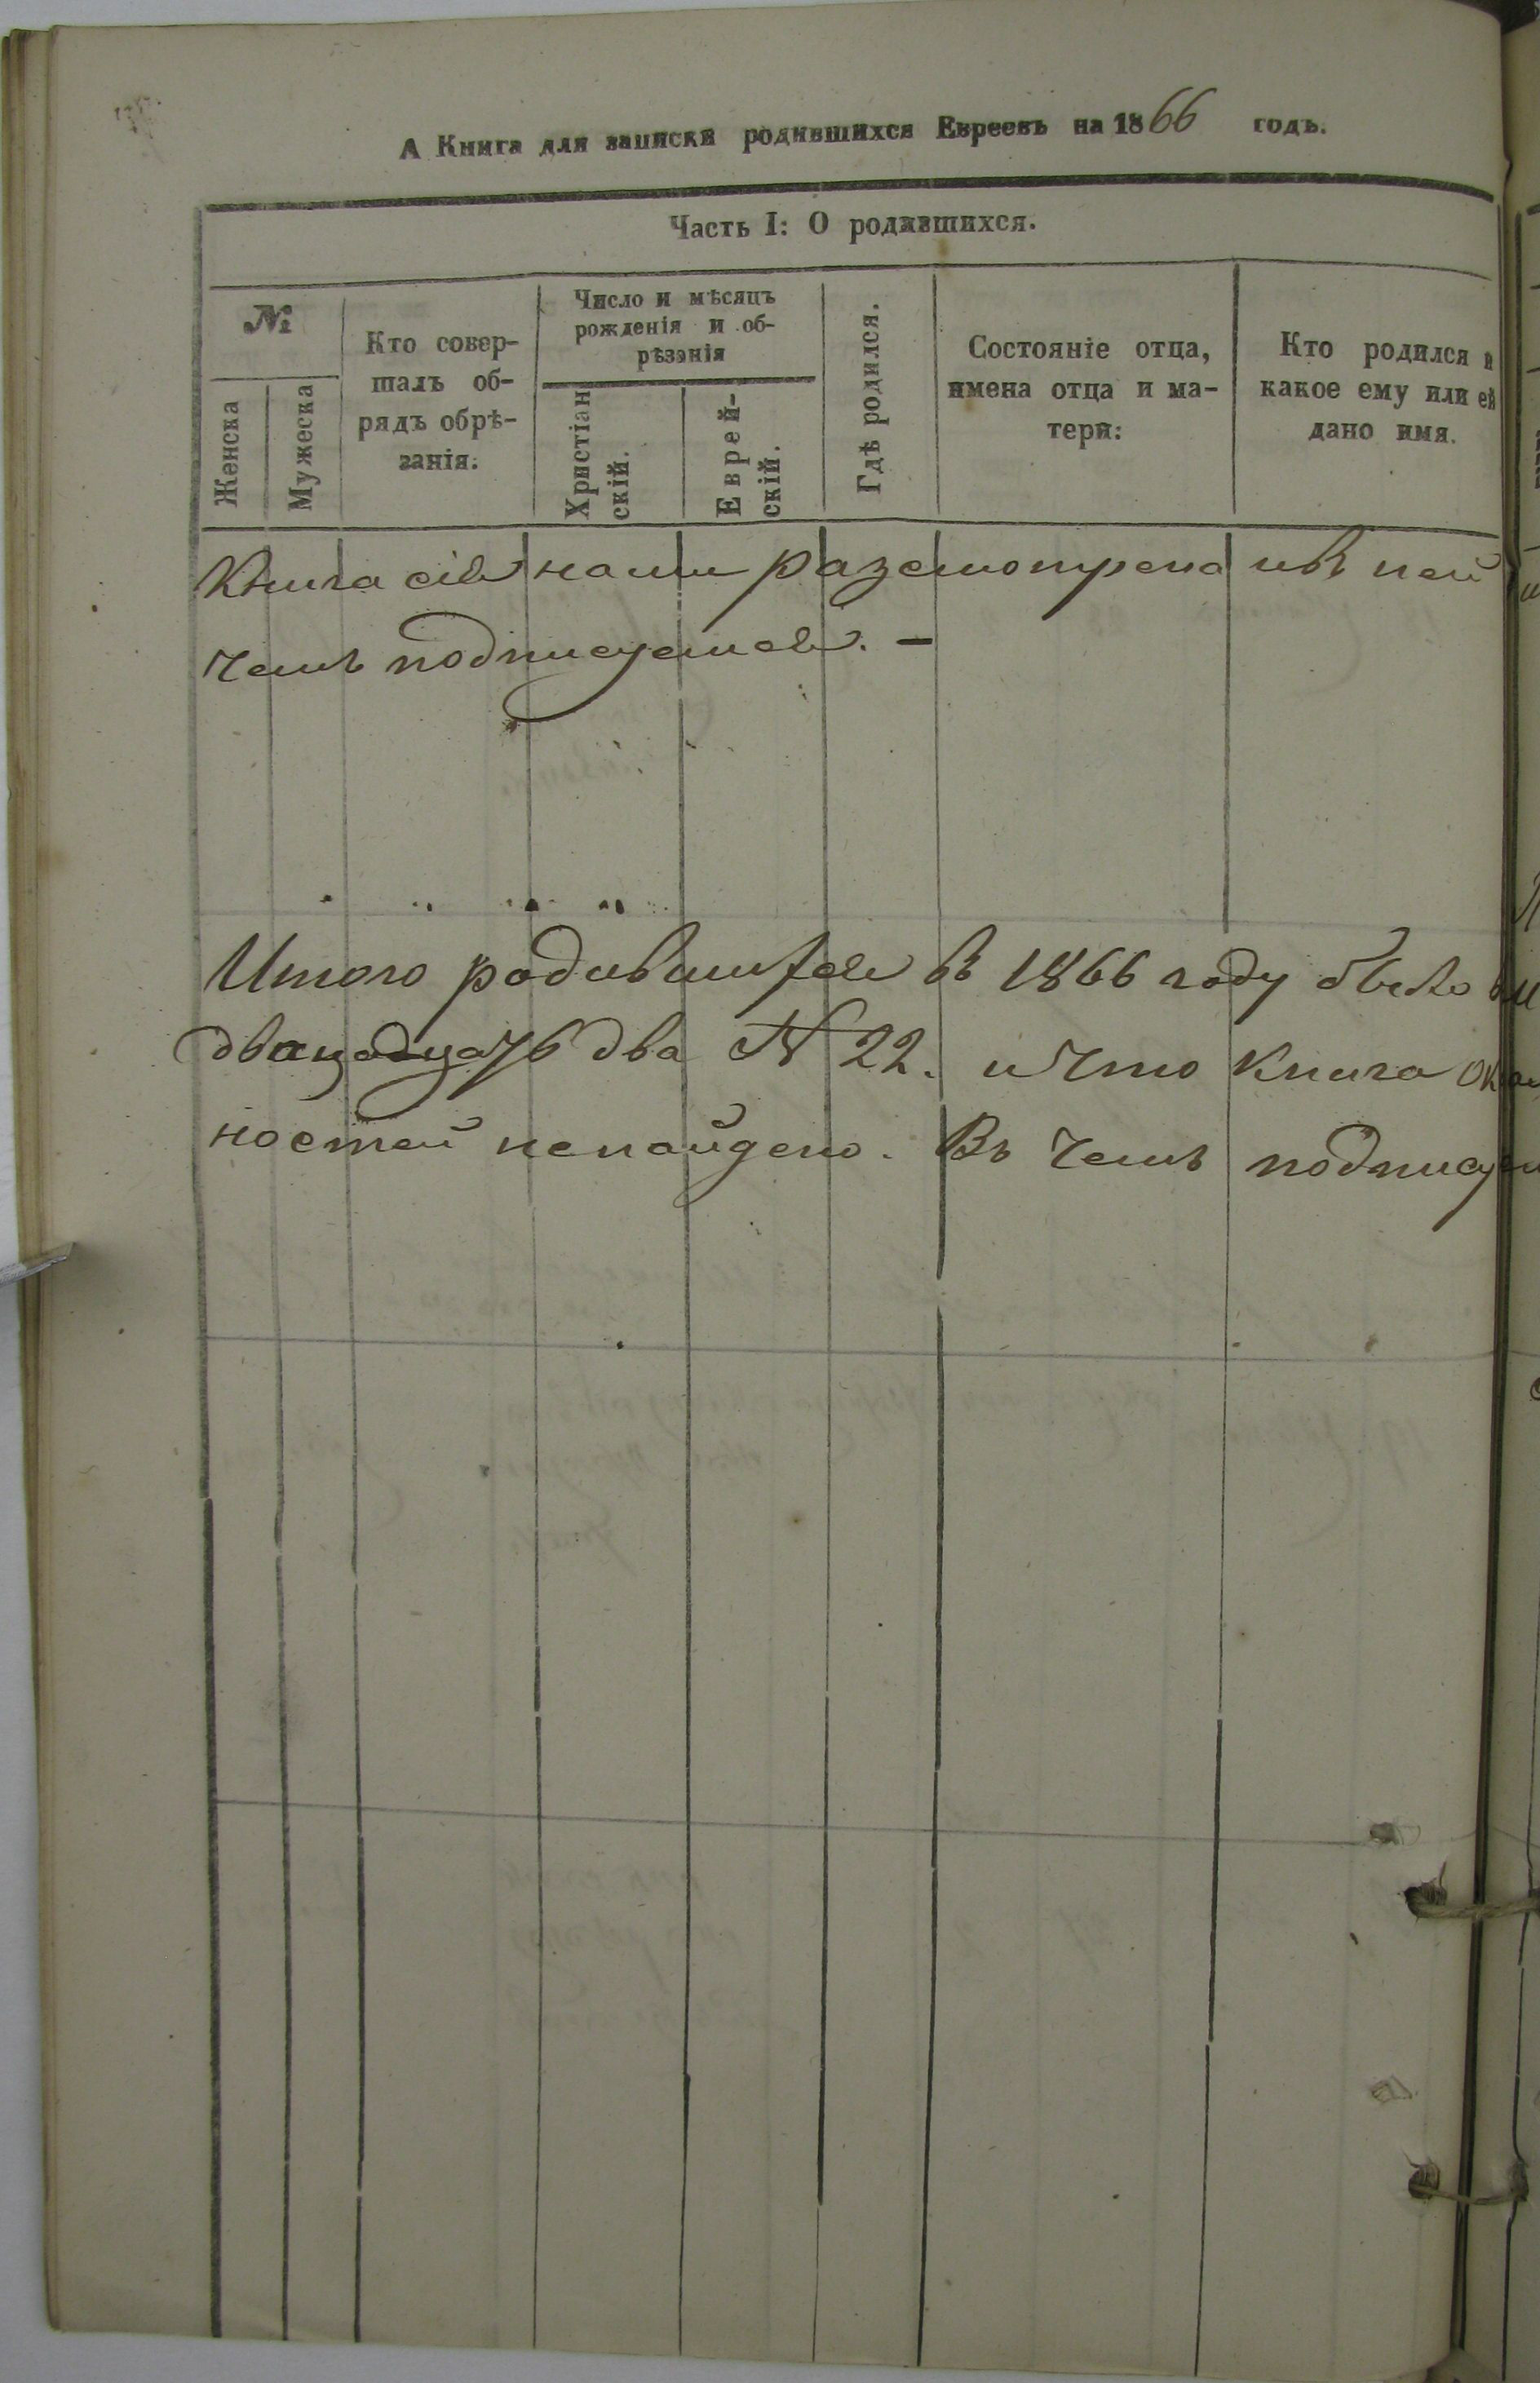 А Книга для записки родившихся Евреевъ на 1866 годъ.
Часть I: О родившихся.
№
Женска
Мужеска
Кто совер-
шалъ об-
рядъ обрѣ-
занія.
Число и мѣсяцъ
рожденія и об-
рѣзанія
Христіан
скій.
Еврей-
скій.
Гдѣ родился.
Состояніе отца,
имена отца и ма-
тери:
Кто родился и
какое ему или ей
дано имя.
Книга сія нами разсмотрена и въ ней
чемъ подписуемся. —
Итого родившихся въ 1866 году было
двацадцать два № 22. и что книга
ностей ненайдено. Въ чемъ подпису